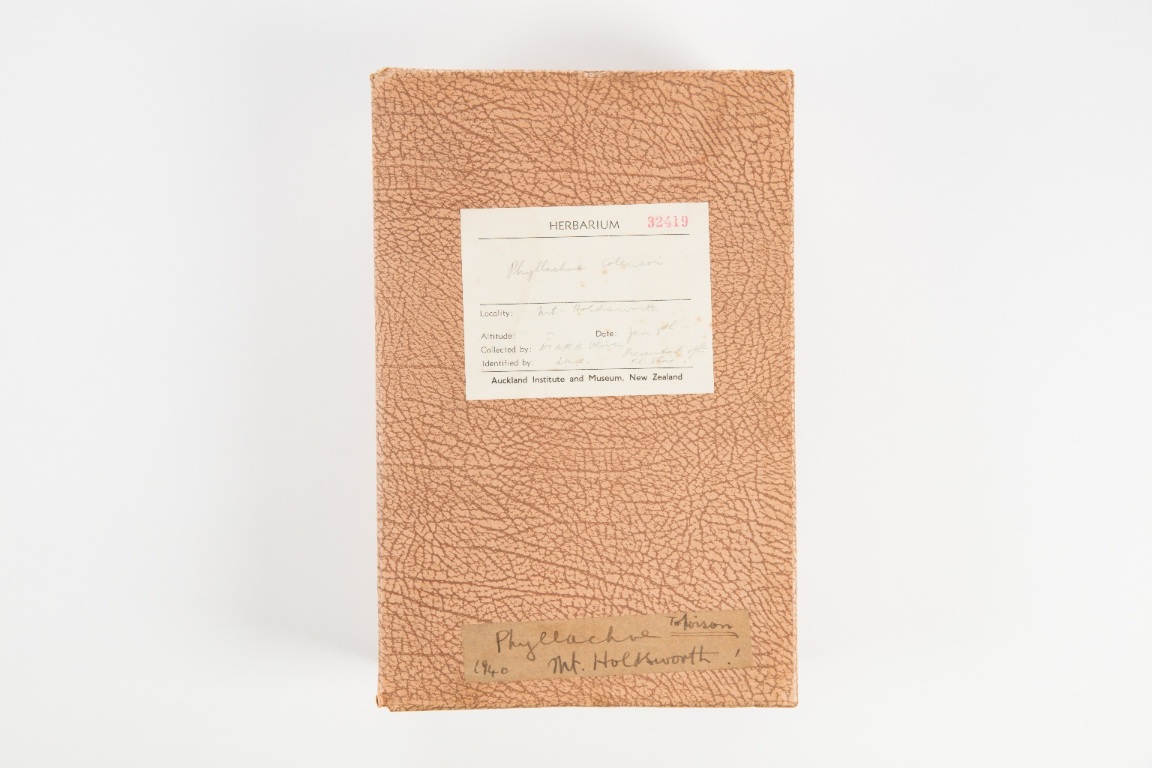 HERBARIUM 32419
Phyllachne colensoi
Locality: Mt. Holdsworth
Altitude: Date: Jan
Collected by: Oliver
Identified by:
Auckland Institute and Museum, New Zealand
Phyllachne
1940 Mt. Holdsworth !